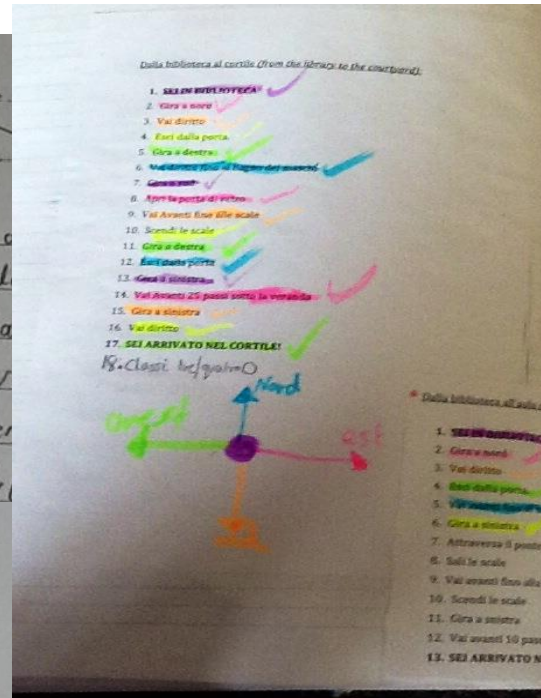 Dalla biblioteca al cortile (from the library to the courtyard):
1. SEI IN BIBLIOTECA
2. Gira a nord
3. Vai diritto
4. Esci dalla porta
5. Gira a destra
6. Vai diritto fino al bagno dei maschi
7. Gira a
8. Apri la porta di vetro
9. Vai Avanti fino alle scale
10. Scendi le scale
11. Gira a destra
12. Esci dalla porta
13. Gira a sinistra
14. Vai Avanti 25 passi sotto la veranda
15. Gira a sinistra
16. Vai diritto
17. SEI ARRIVATO NEL CORTILE!
18. Classi tre/quattro
Nord
est
Dalla biblioteca all'aula
1. SEI IN
2. Gira a nord
3. Vai diritto
4. Esci dalla porta
5.
6. Gira a sinistra
7. Attraversa il
8. Sali le scale
9. Vai avanti fino
10. Scendi le scale
11. Gira a sinistra
12. Vai avanti 10
13. SEI ARRIVATO